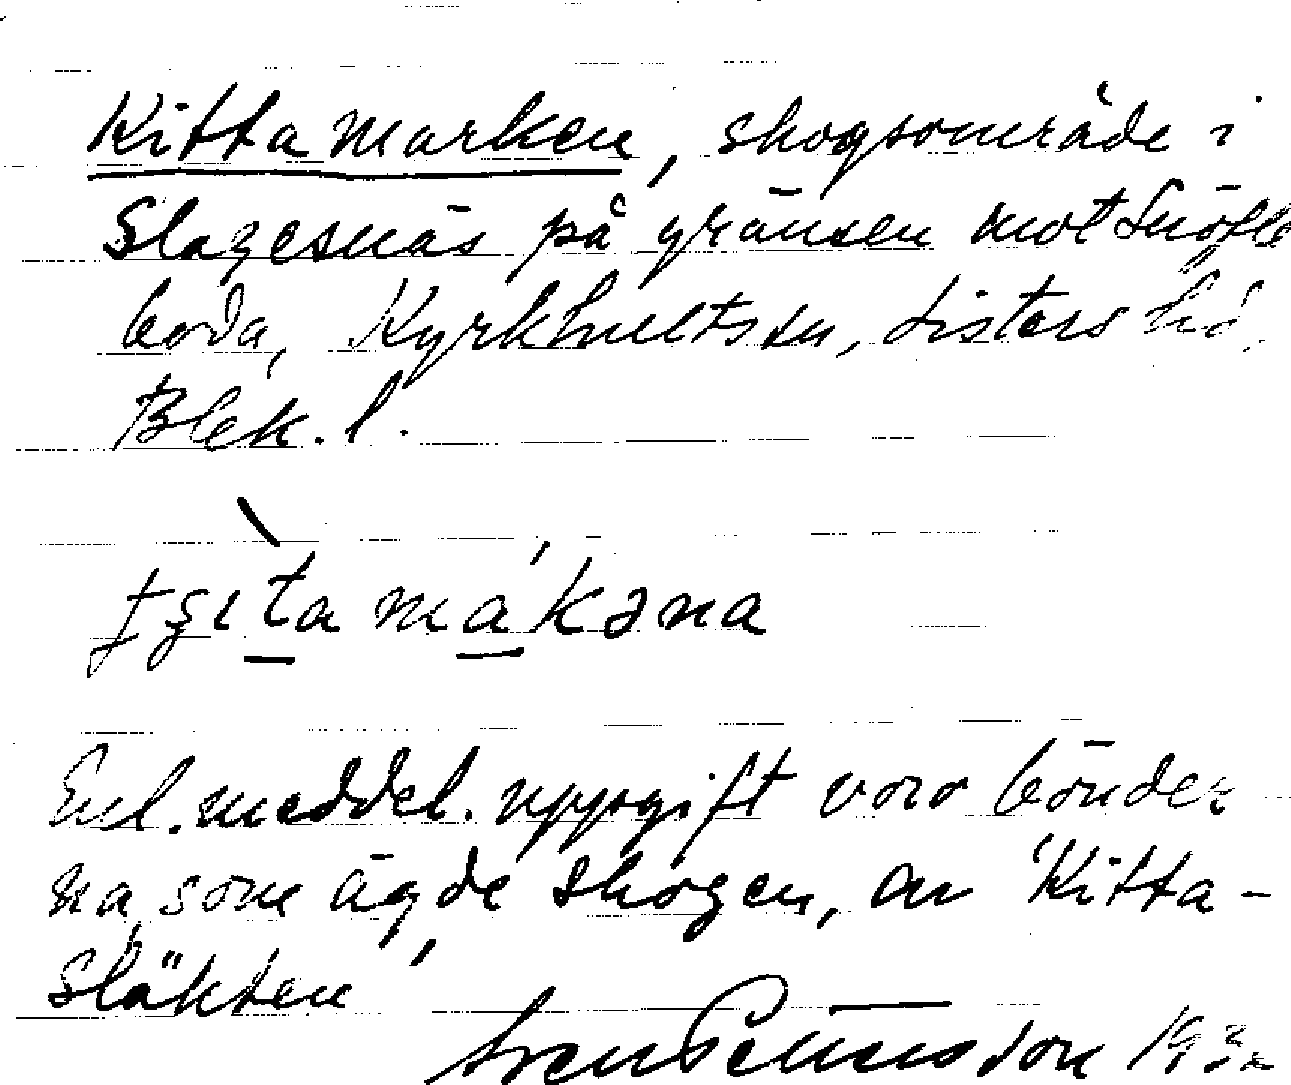 Kittamarken, skogsområde i
Slagesnäs på gränsen mot Snöfle
boda, Kyrkhults sn, Listers hd,
Blek. l.
Enl. meddel. uppgift voro bönder
na, som ägde skogen, av 'Kitta-
släkten'
Sven Benson 193